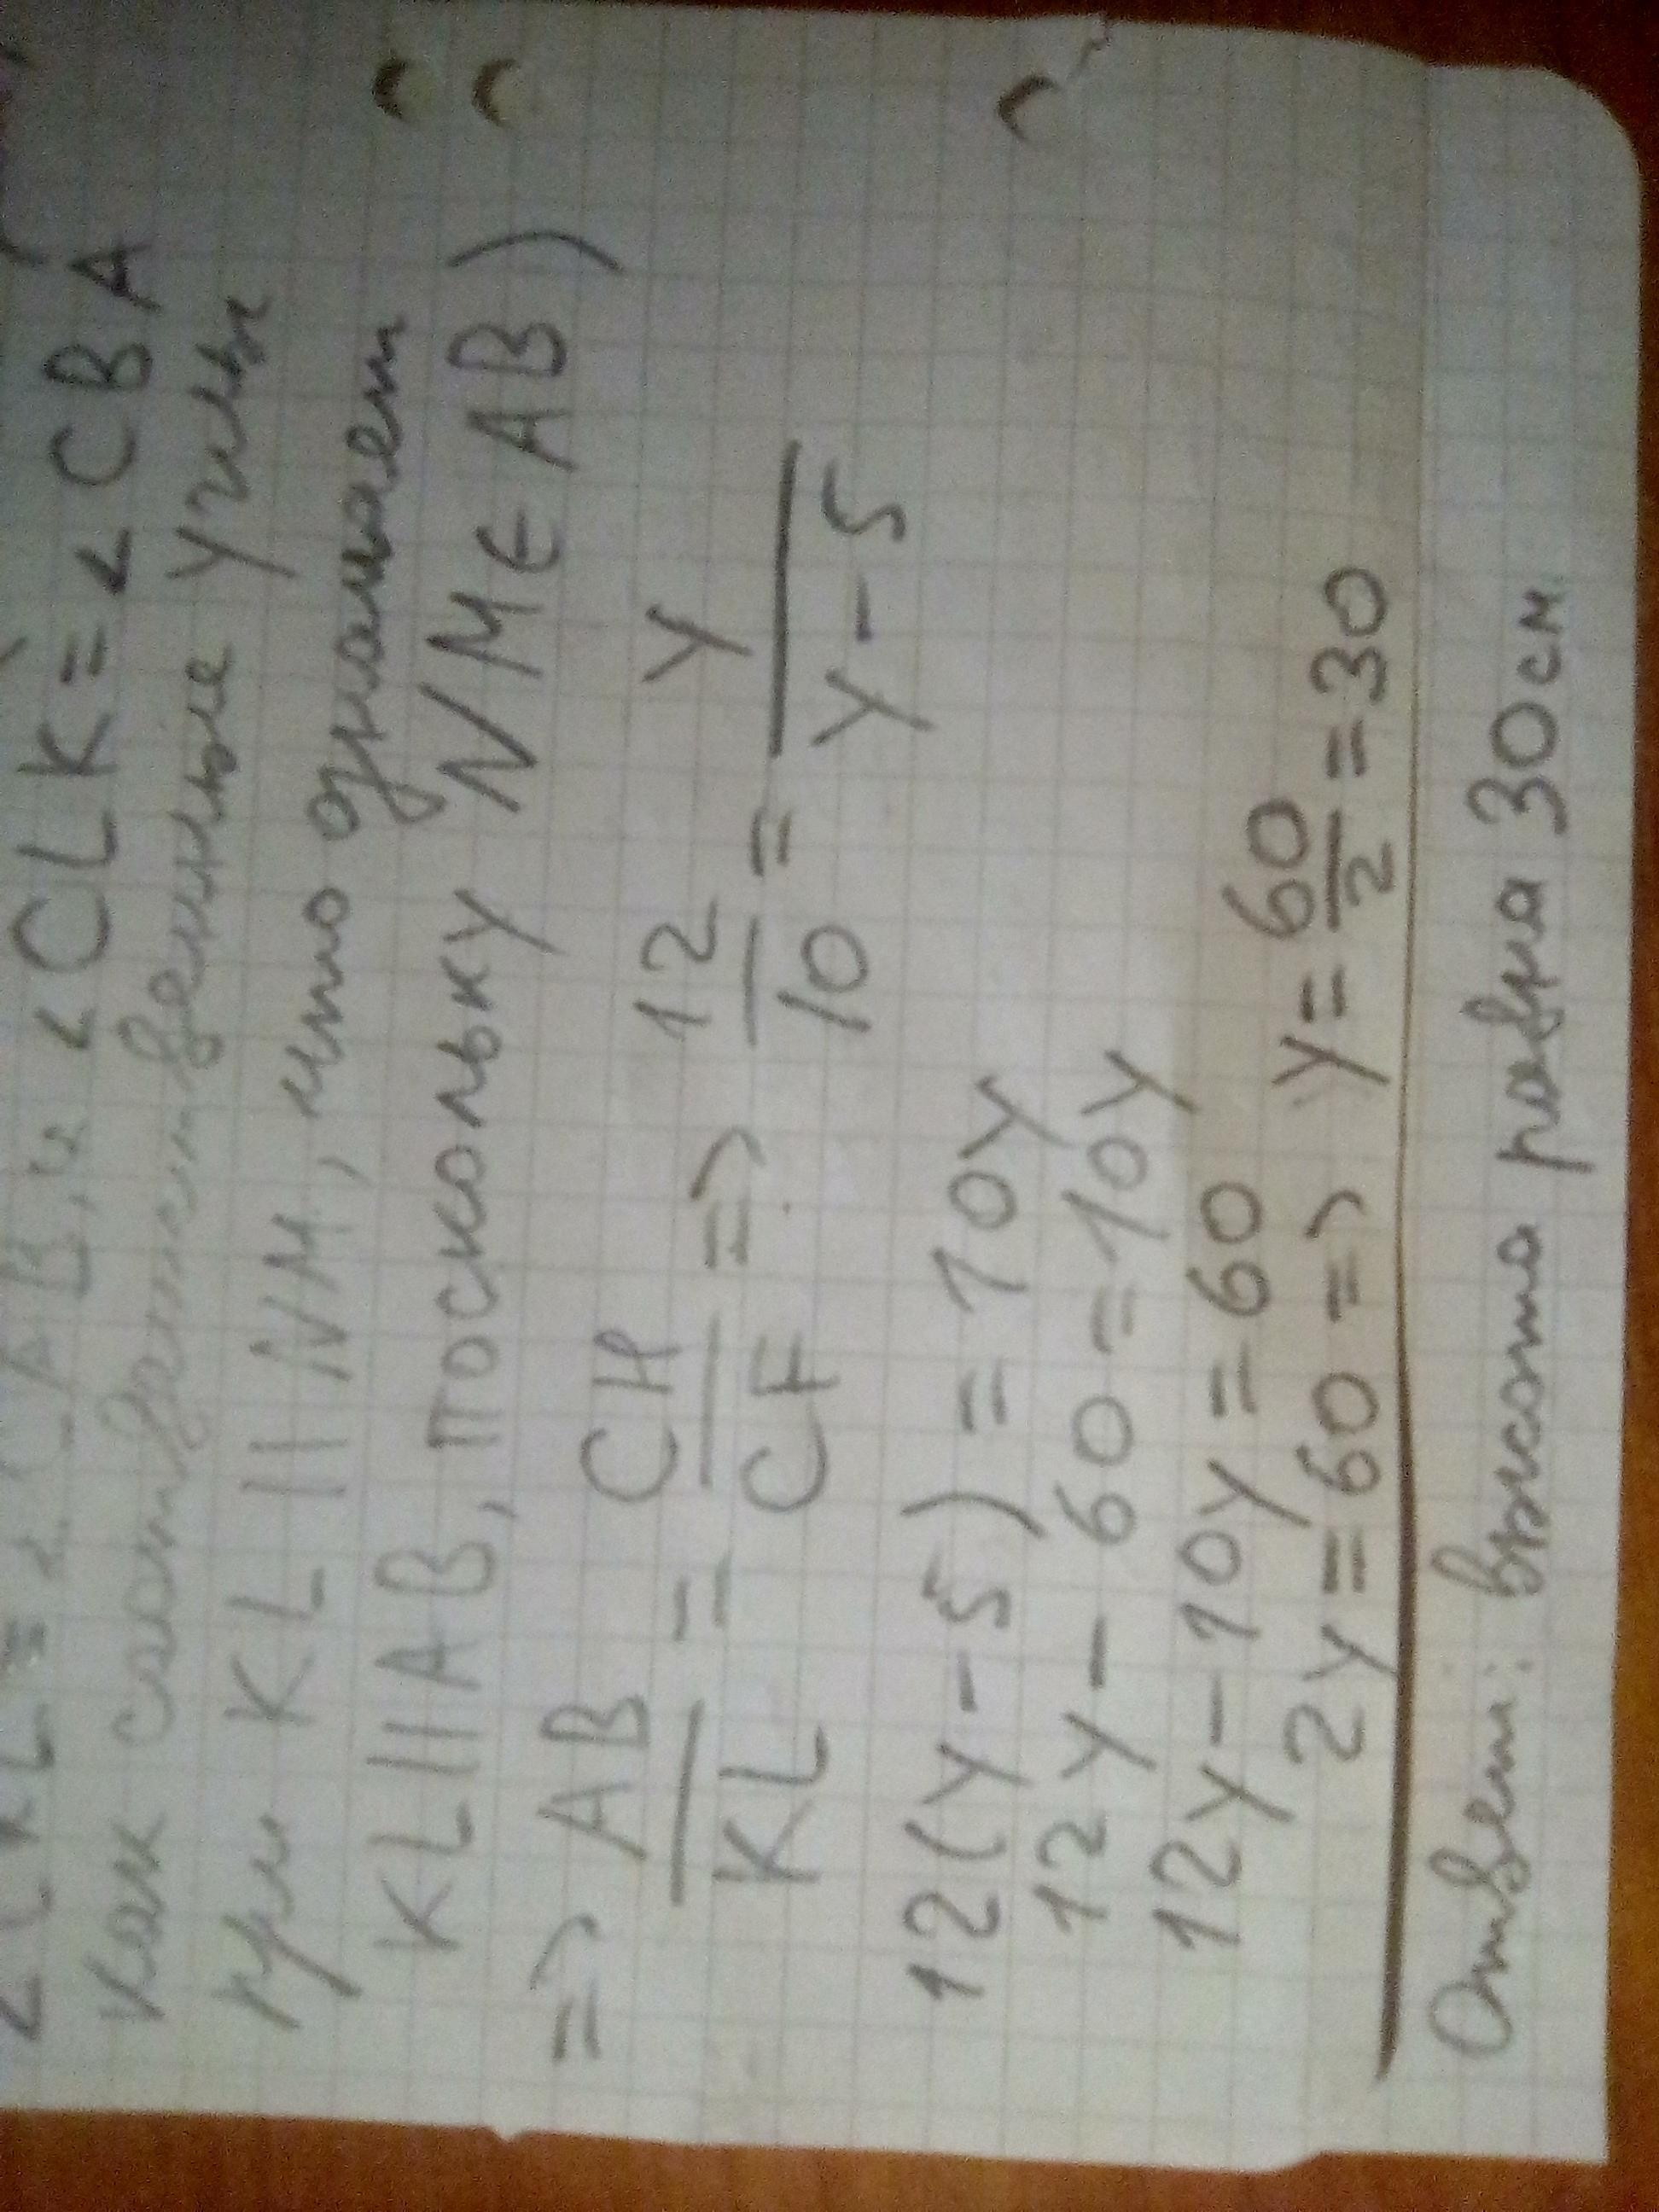 ∠CKL = ∠CAB, и ∠CLK = ∠CBA
как соответственные углы
при KL || NM, что означает
KL || AB, поскольку NM ∈ AB)
=> AB/KL = CH/CF => 12/10 = y/y-5
12(y-5) = 10y
12y - 60 = 10y
12y - 10y = 60
2y = 60 => y = 60/2 = 30
Ответ: высота равна 30 см